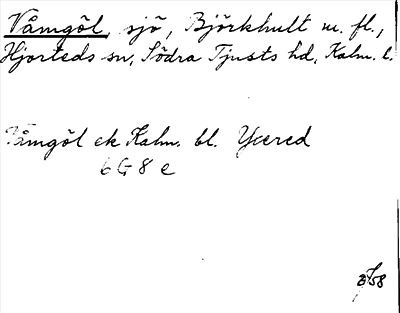 Våmgöl, sjö, Björkhult m. fl.,
Hjorteds sn, Södra Tjusts hd, Kalm. l.
Våmgöl ek Kalm. bl. Yxered
6 G 8 e